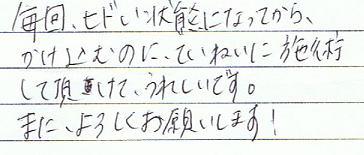 毎回、ヒドい状態になってから、
かけ込むのに、ていねいに施術
して頂けて、うれしいです。
またに、よろしくお願いします!